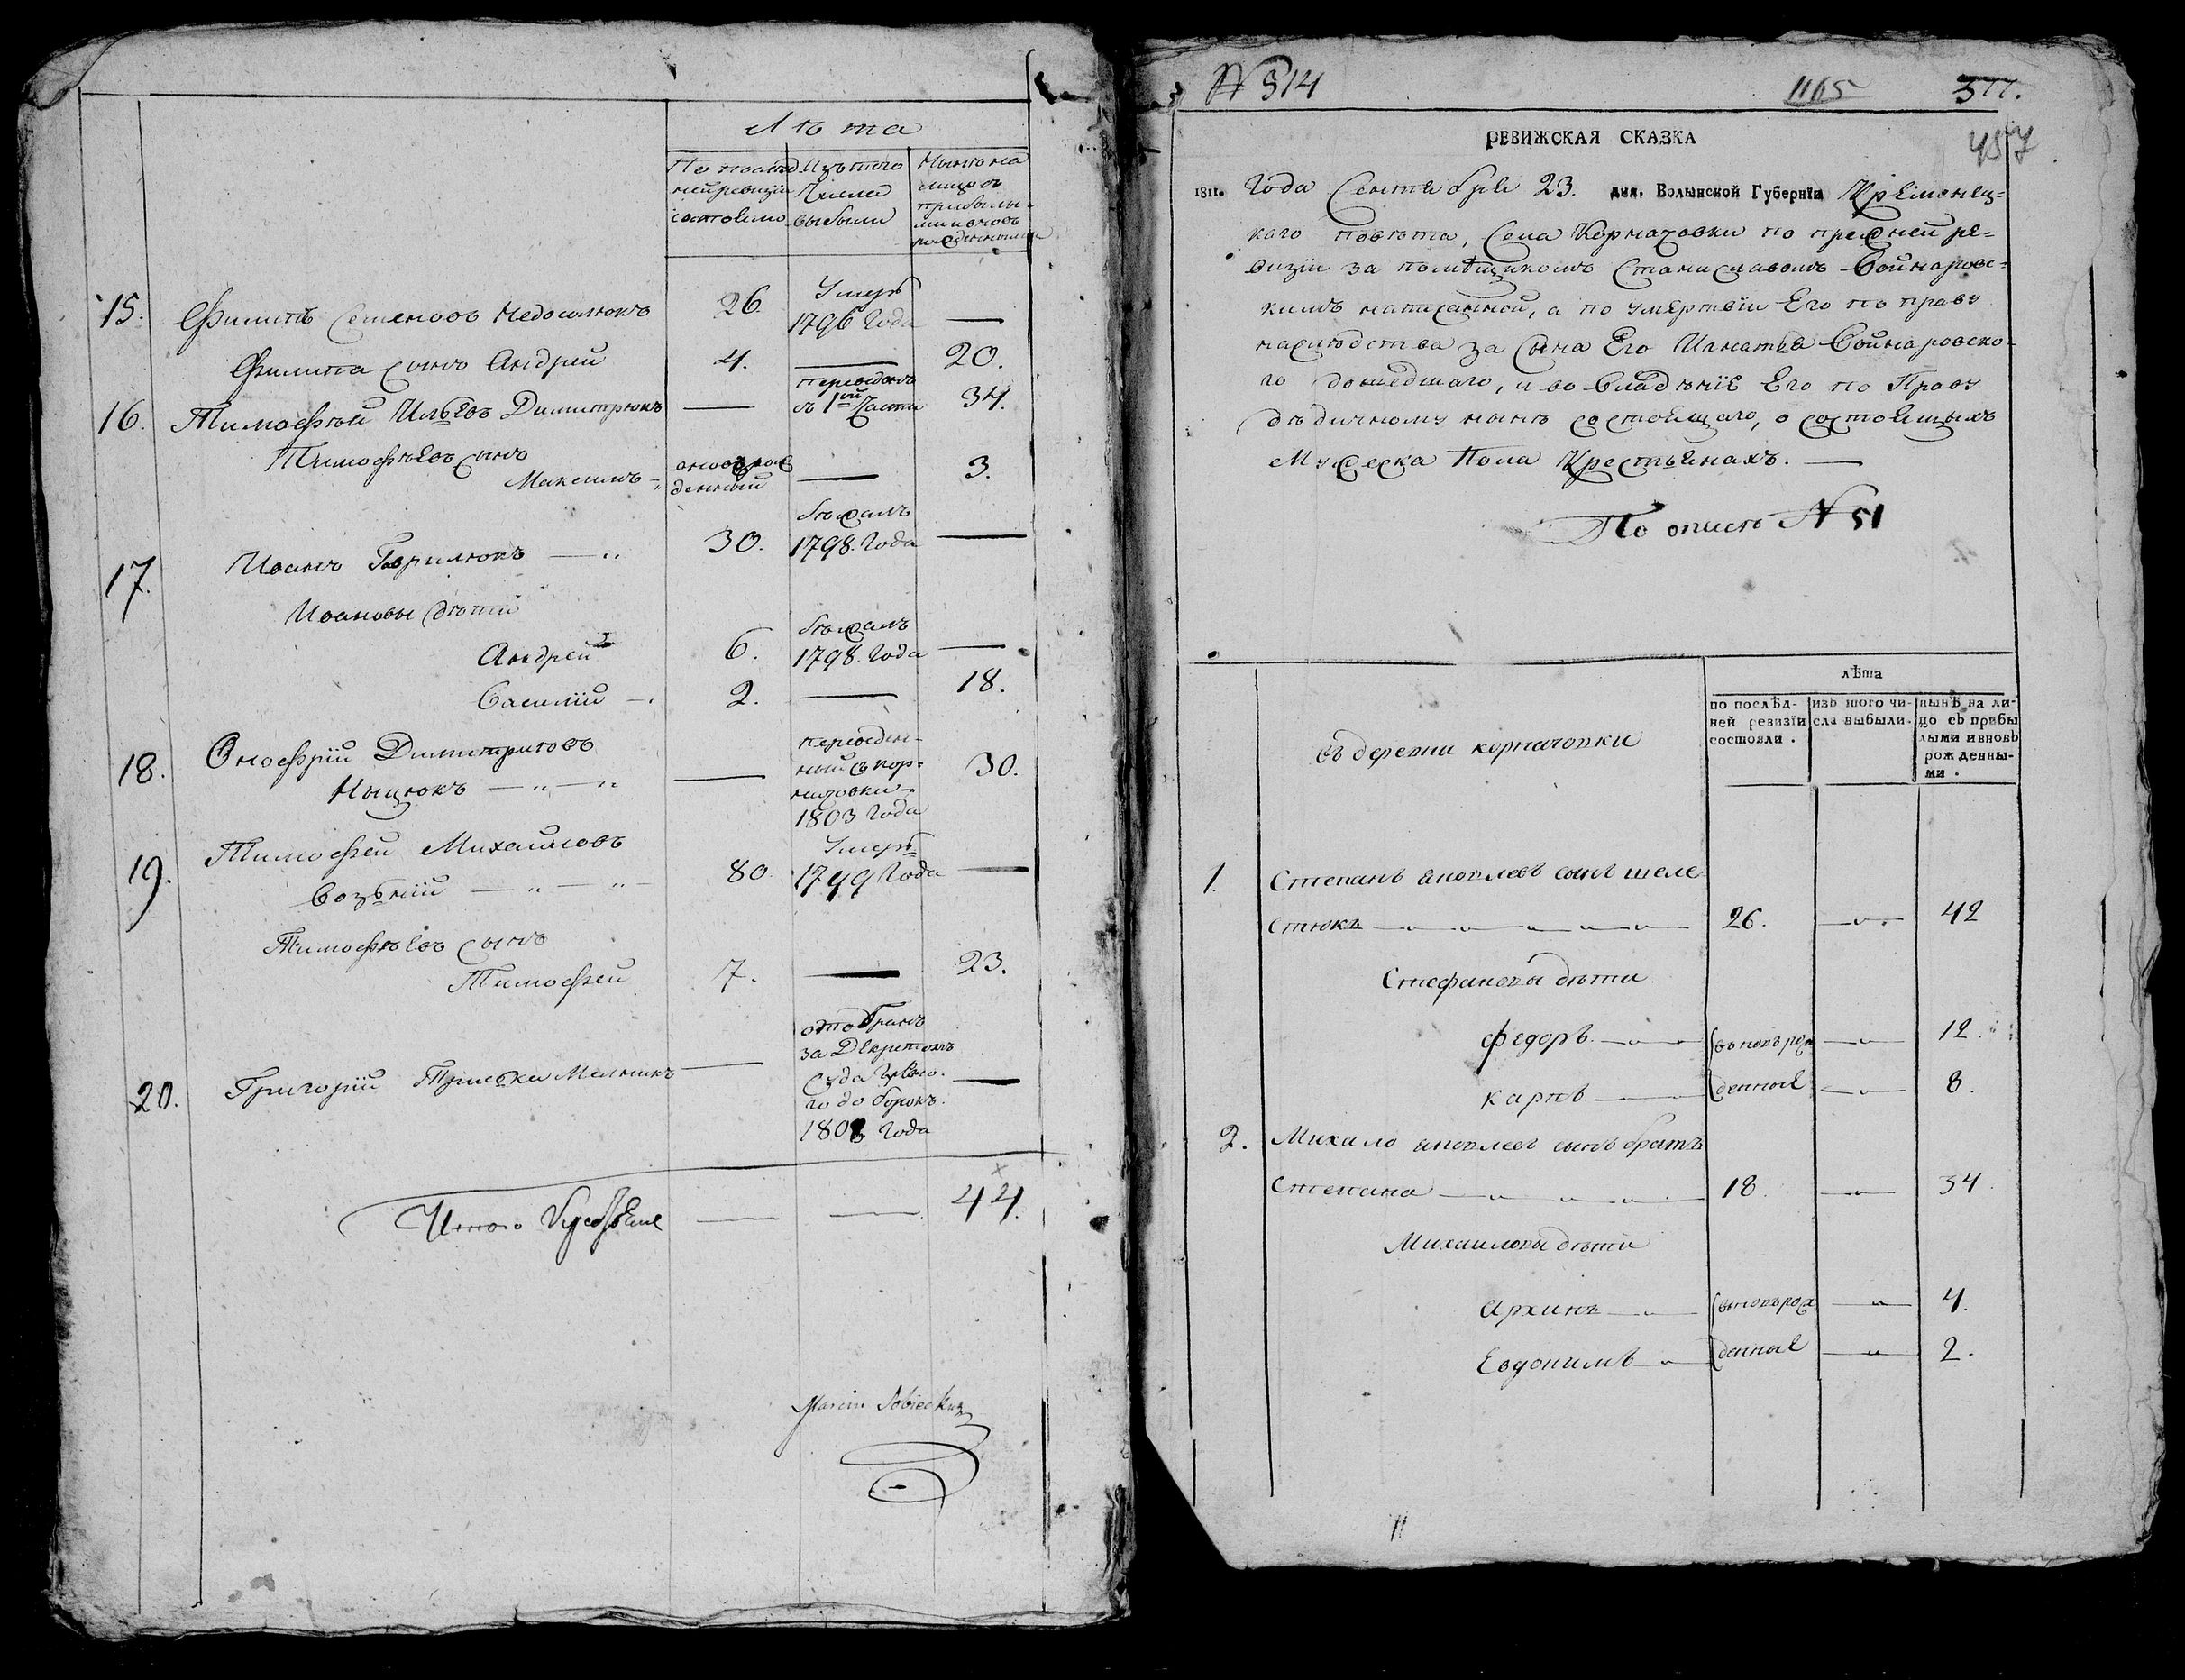 Лѣта
По послѣд
ней ревизіи
состояло
Изъ того
числа
выбыли
Нынѣ на
лицо съ
прибылы-
ми и вновь
рожденными
15. Филипъ Семеновъ Недосилюкъ 26. Умеръ 1796 Года —
Филипа сынъ Андрей 4. — 20.
16. Тимофѣй Ильевъ Димитрюкъ — переведенъ съ 1ой Части 34.
Тимофѣевъ сынъ
Максимъ вновь рожденный — 3.
17. Иванъ Гаврилюкъ 30. бѣжалъ 1798. Года —
Ивановы дѣти
Андрей 6. бѣжалъ 1798. Года —
Василій 2. — 18.
18. Онофрій Димитриговъ
Ныцюкъ — переведенный съ 1803 Года 30.
19. Тимофей Михайловъ
Возьній 80. Умеръ 1799 Года —
Тимофѣевъ сынъ
Тимофей 7. — 23.
20. Григорій Мельникъ — отобранъ за Декретомъ Суда 1808 Года —
Итого 44.
Marcin Sobiecki
N 314 1165 377.
457
РЕВИЖСКАЯ СКАЗКА
1811. Года Сентября 23. дня, Волынской Губерніи Кременец-
каго повѣта, Села Корначовки по прежней ре-
визіи за помѣщикомъ Станиславомъ Войнаровс-
кимъ написанной, а по умертвіи Его по праву
наслѣдства за сына Его Игнатія Войнаровско-
го дошедшаго, и во владѣніе Его по Праву
дѣдичному нынѣ состоящаго, о состоящихъ
Мужеска Пола Крестьянахъ. —
По описѣ N 51
лѣта
съ деревни корначовки
по послѣд-
ней ревизіи
состояли.
изъ того чи-
сла выбыли.
нынѣ на ли-
цо съ прибы
лыми и вновь
рожденны-
ми.
1. Степанъ яковлевъ сынъ шеле
стюкъ 26. — 42
Стефановы дѣти
федоръ вновь рож — 12.
карпъ денные — 8.
2. Михайло яковлевъ сынъ братъ
Степана 18. — 34.
Михайловы дѣти
Архипъ вновь рож — 4.
Евдокимъ денные — 2.